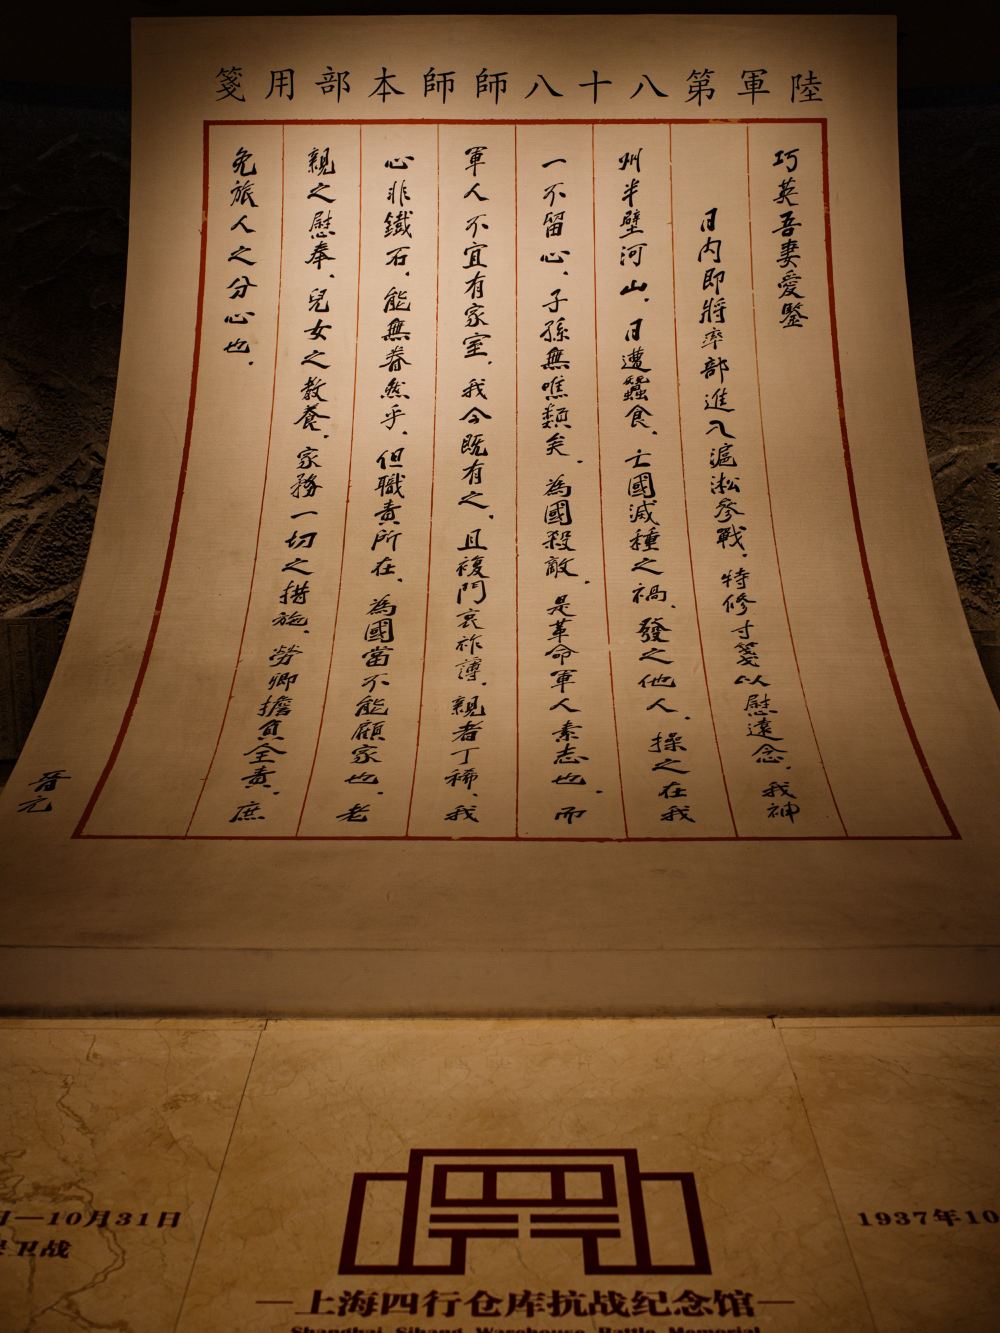 陸軍第八十八師師本部用箋
巧英吾妻愛鑒
日內即將率部進入滬淞參戰.特修寸箋以慰遠念.我神
州半壁河山.日遭蠶食.亡國滅種之禍.發之他人.操之在我
一不留心.子孫無噍類矣.為國殺敵.是革命軍人素志也.而
軍人不宜有家室.我今既有之.且複門衰祚薄.親者丁稀.我
心非鐵石.能無眷然乎.但職責所在.為國當不能顧家也.老
親之慰奉.兒女之教養.家務一切之措施.勞卿擔負全責.庶
免旅人之分心也.
晉元
月—10月31日
卫战
1937年10
上海四行仓库抗战纪念馆
Shanghai Sihang Warehouse Battle Memorial